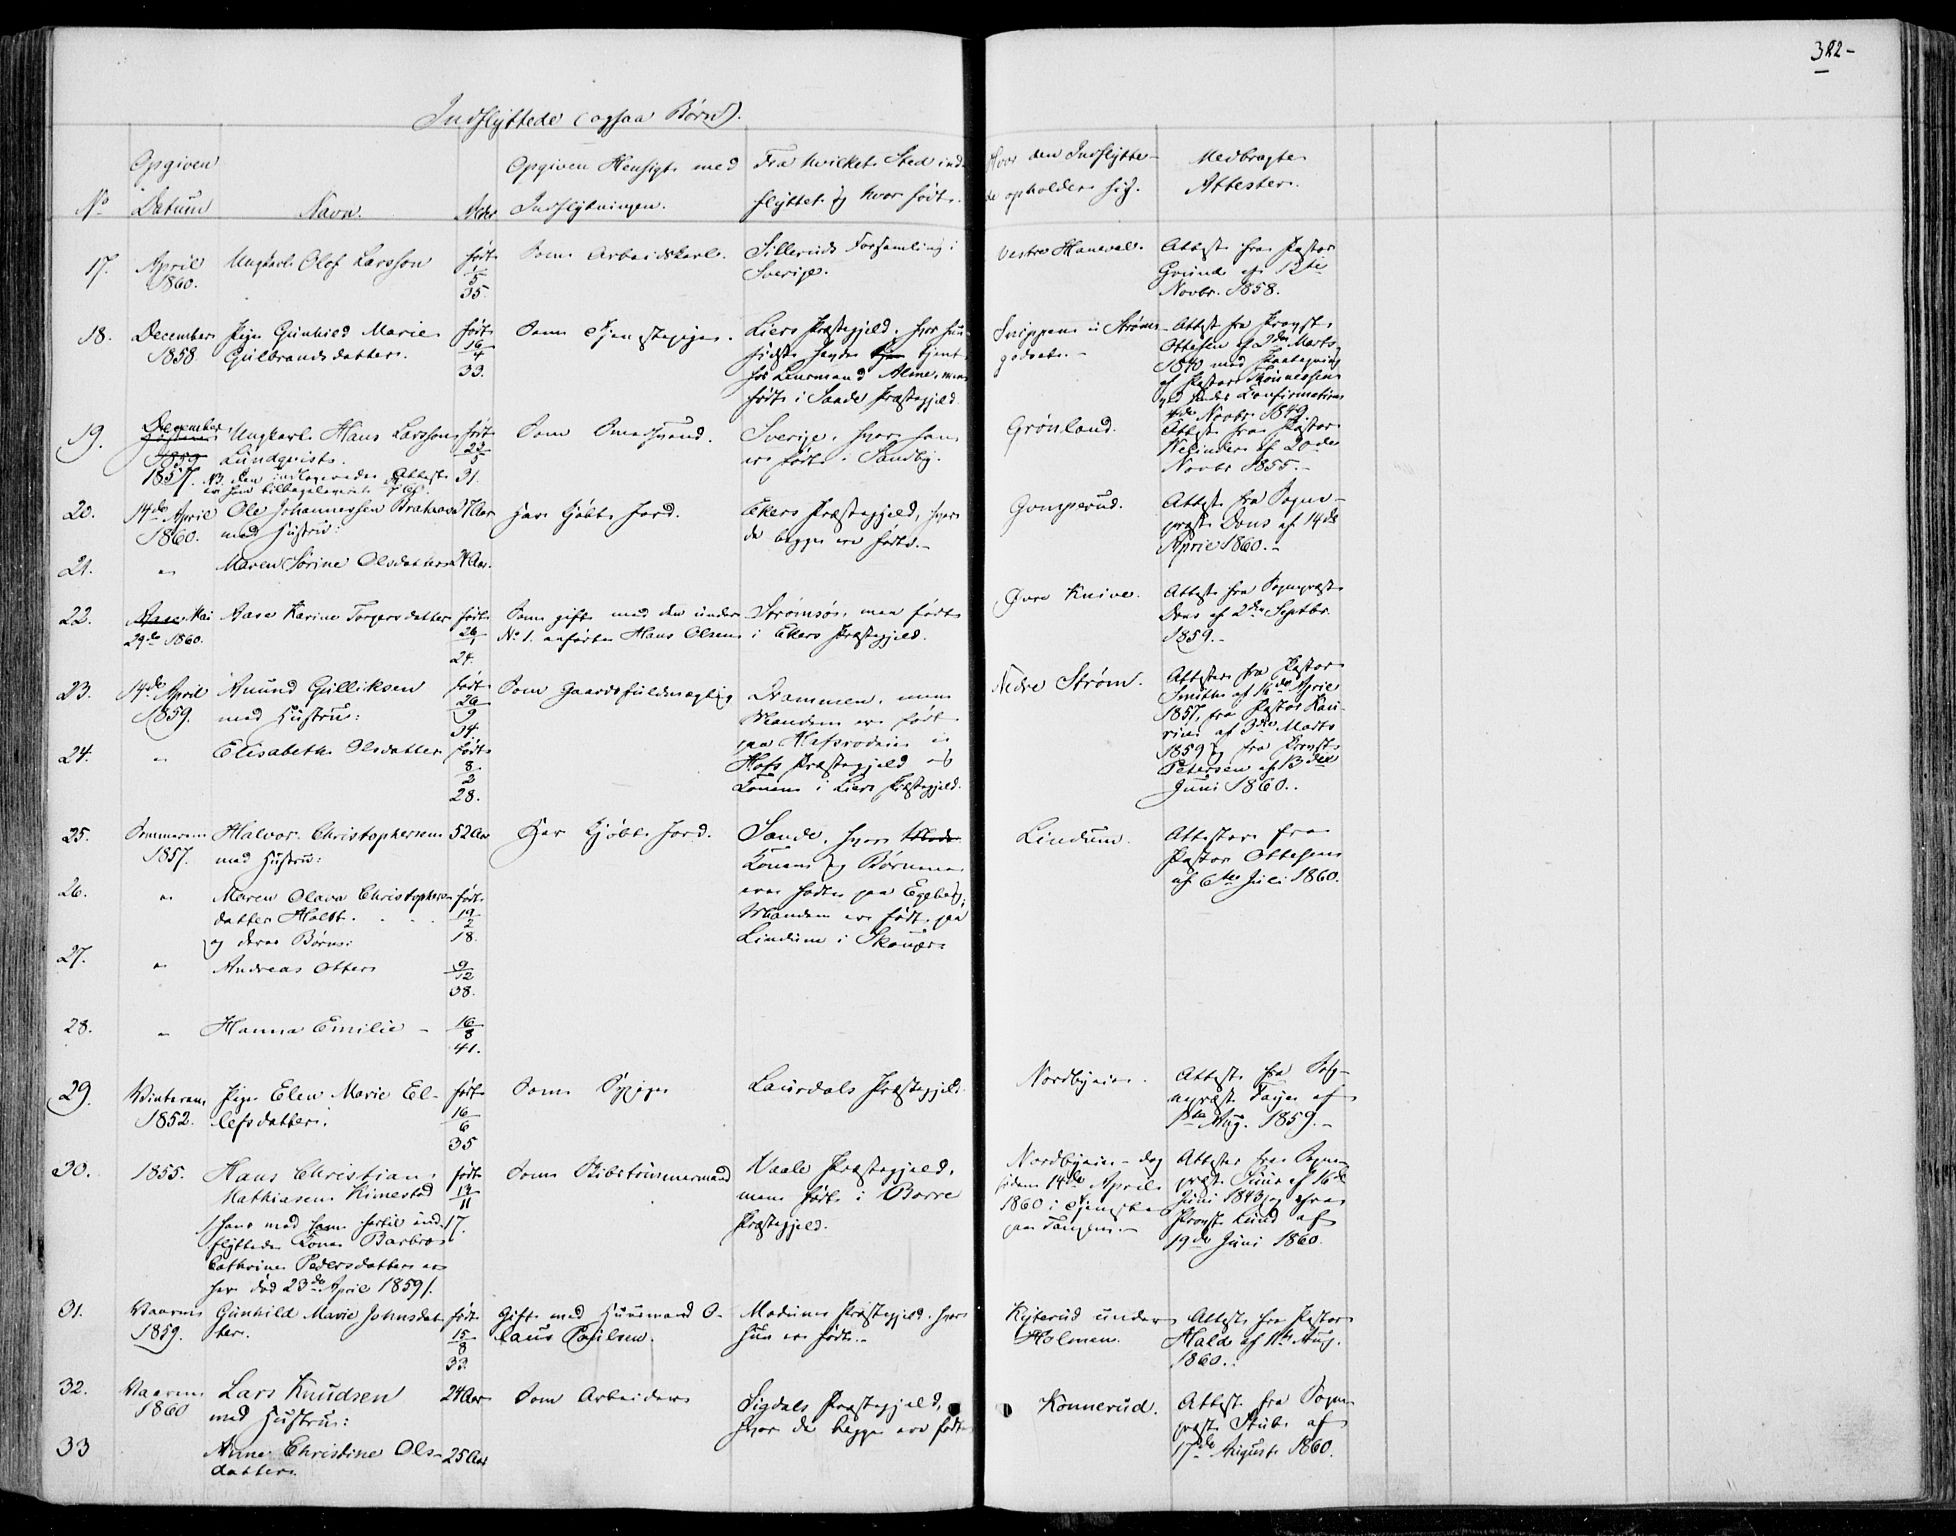 322-
Indflyttede (ogsaa Børn).
Opgiven
Datum
No
Navn.
Alder
Opgiven Hensigt med
Indflytningen.
Fra hvilket Sted ind-
flyttet og hvor født.
Hvor den Indflytte-
de opholder sig.
Medbragte
Attester.
17.
April
1860.
Ungkarl Olof Larsson
født
5
35.
Som Arbeidskarl.
Silleruds Forsamling i
Sverige.
Vestre Haneval.
Attest fra Pastor
Grund af 12te
Novbr. 1858.
18.
December
1858.
Pige Gunhild Marie
Gulbrandsdatter.
født
16
4
33.
Som Tjenestepige.
Liers Præstegjeld, hvor hun
sidst havde tjent
hos Lensmand Alme, men
født i Sande Præstegjeld.
Snippen i Strøms-
godset.-
Attest fra Provst
Ottesen af 2den Marts
1840 med Paategning
af Pastor Tønnessen
ved hendes Confirmation
4de Novbr. 1849.
19.
December
1859
1857.
Ungkarl Hans Larsson
Lundquist.
NB. Den indleverede Attest
er ham tilbageleveret.
født
23
5
31.
Som Smedsvend.
Sverige, hvor han
er født i Sandby.
Grønland.
Attest fra Pastor
Nelander af 20de
Novbr 1855.-
20.
14de April
1860.
Ole Johannessen Braterud
med Hustru:
27 Aar
Har kjøbt Jord.
Ekers Præstegjeld, hvor
de begge ere fødte.-
Gomperud.
Attest fra Sogne-
præst Dons af 14de
April 1860.-
21.
"
Maren Sørine Olsdatter
24 Aar.
22.
Mai
29de 1860.
Aase Karine Torgersdatter
født
26
1
24.
Som gift med den under
No 1. anførte Hans Olsen
Strømsø, men født
i Ekers Præstegjeld.
Øvre Knive.
Attest fra Sognepræst
Dons af 2den Septbr.
1859.-
23.
14de April
1859.
Anund Gulliksen
med Hustru:
født
26
9
34.
Som Gaardsfuldmægtig
Drammen, men
Manden er født
paa Hafsrødein i
Hofs Præstegjeld og
Konen i Liers Præstegjeld.
Nedre Strøm.
Attester fra Pastor
Smith af 16de April
1857, fra Pastor Kau-
rin af 3die Marts
1859 og fra Provst
Petersen af 13de
Juni 1860..
24.
"
Elisabeth Olsdatter
født
8
2
28.
25.
Sommeren
1857.
Halvor Christophersen
med Hustru:
52 Aar
Har kjøbt Jord.
Sande, hvor
Konen og Børnene
ere fødte paa Egeberg;
Manden er født paa
Lindum i Skouger.
Lindum.
Attester fra
Pastor Ottesen
af 6te Juli 1860.
26.
"
Maren Olava Christophers-
datter Holth
og deres Børn:
født
19
2
18.
27.
"
Andreas Otter
9
12
38.
28.
"
Hanna Emilie -
16
8
41.
29.
Vinteren
1852.
Pige Elen Marie El-
lefsdatter.
født
16
6
35
Som Sypige
Laurdals Præstegjeld.
Nordbyeie.
Attest fra Sog-
nepræst Faye af
1ste Aug. 1859.-
30.
1855.
Hans Christian
Mathiasen Kimestad
(hans med ham hertil ind-
flyttede Kone Barbro
Cathrine Pedersdatter er
her død 23de April 1859).
født
13
11
17.
Som Skibstømmermand
Vaale Præstegjeld,
men født i Borre
Præstegjeld.
Nordbyeie - dog
siden 14de April
1860 i Tjeneste
paa Tangen.-
Attester fra Sogne-
præst Juul af 16de
Juni 1843 og fra
Provst Lund af
19de Juni 1860.
31.
Vaaren
1859.
Gunhild Marie Johnsdat-
ter.
født
15
8
33.
Gift med Huusmand O-
laus Poulsen.
Modums Præstegjeld, hvor
hun er født.-
Kjterud under
Holmen.
Attest fra Pastor
Hald af 11te Aug.
1860..
32.
Vaaren
1860
Lars Knudsen
med Hustru:
24 Aar
Som Arbeider
Sigdals Præstegjeld,
hvor de begge ere født
Konnerud.
Attest fra Sogne-
præst Stub af
17de August 1860.
33
Anne Christine Ols-
datter.
25 Aar